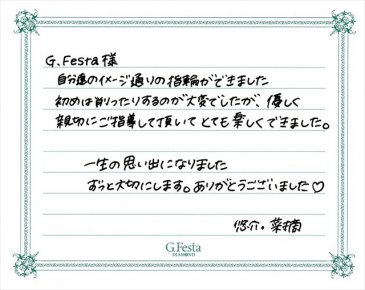 G.Festa様
自分達のイメージ通りの指輪ができました
初めは削ったりするのが大変でしたが、優しく
親切にご指導して頂いてとても楽しくできました。
一生の思い出になりました
ずっと大切にします。ありがとうございました♡
悠介・菜摘
G.Festa
DIAMOND